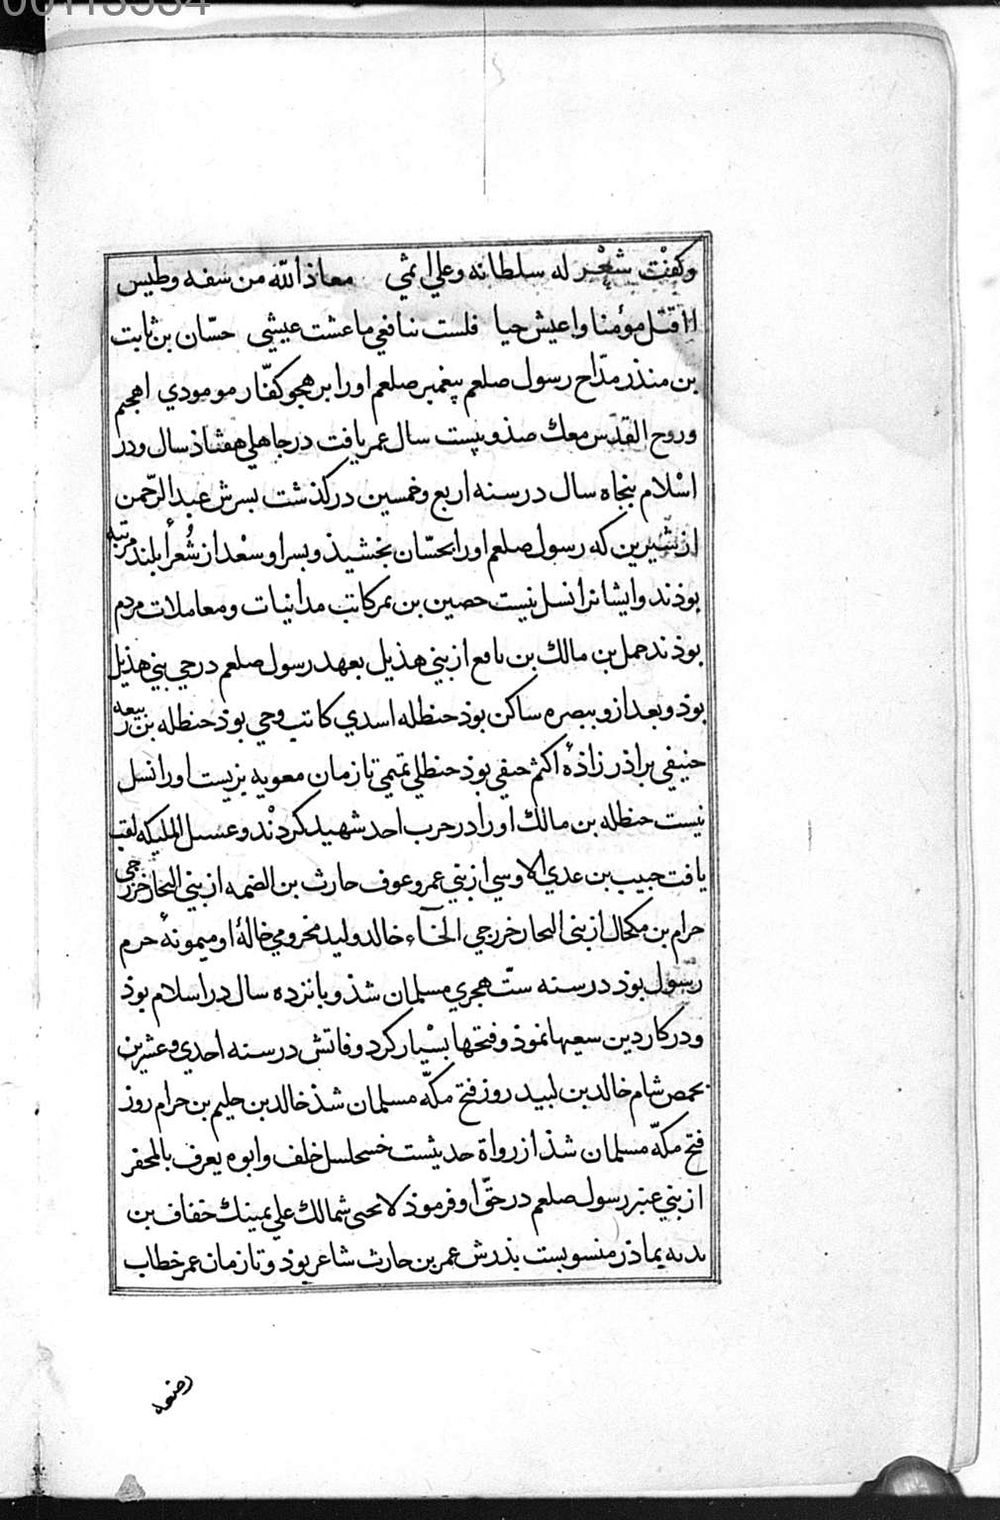 00113534
وکفت شعر له سلطانه وعلي اثمي معاذ الله من سفه وطيش
ااقتل مؤمنا واعيش حيا فلست بنافعي ماعشت عيشي حسّان بن ثابت
بن منذر مدّاح رسول صلعم پیغمبر صلعم اورا بر هجو کفّار مومودي اهجهم
وروح القدس معك صذ وبیست سال عمر یافت در جاهلي هفتاذ سال ودر
اسْلام پنجاه سال در سنه اربع وخمسین درکذشت بسرش عبد الرّحمن
از شیرین که رسول صلعم اورا بحسّان بخشیذ وبسر او سعْد از شُعرأ بلند مرتبه
بوذند وایشانرا نسل نیست حصین بن نمر کاتب مداینات ومعاملات مردم
بوذند حمل بن مالك بن نامع از بني هذیل بعهد رسول صلعم در حي بني هذیل
بوذ وبعد ازو ببصره ساکن بوذ حنظله اسدي کاتب وحي بوذ حنظله بن ربیعه
حنیفي براذر زاذهٔ اکثم حنفي بوذ حنظلي تمیمي تا زمان معویه بزیست اورا نسل
نیست حنظله بن مالك اورا در حرب احد شهید کردند وغسیل الملیکه لقب
یافت حبیب بن عدي الاوسي از بني عمرو عوف حارث بن الضمه از بني النجار خزرجي
حرام بن مکحال از بنی النجار خزرجي الخآء خالد ولید مخرومي خالهٔ او میمونهٔ حرم
رسّول بوذ در سنه ستّ هجري مسلمان شذ وپانزده سال در اسلام بوذ
ودر کار دین سعیها نموذ وفتحها بسْیار کرد وفاتش در سنه احدي وعشرین
بحمص شام خالد بن لبید روز فتح مکّه مسلمان شذ خالد بن حلیم بن حرام روز
فتح مکّه مسلمان شذ از رواة حدیثست خلف وابوه یعرف بالمحفر
از بني عنبر رسول صلعم در حقّ او فرموذ لا یحیی شمالك علي یمینك خفاف بن
ندبه بماذر منسوبست بذرش عمر بن حارث شاعر بوذ وتا زمان عمر خطاب